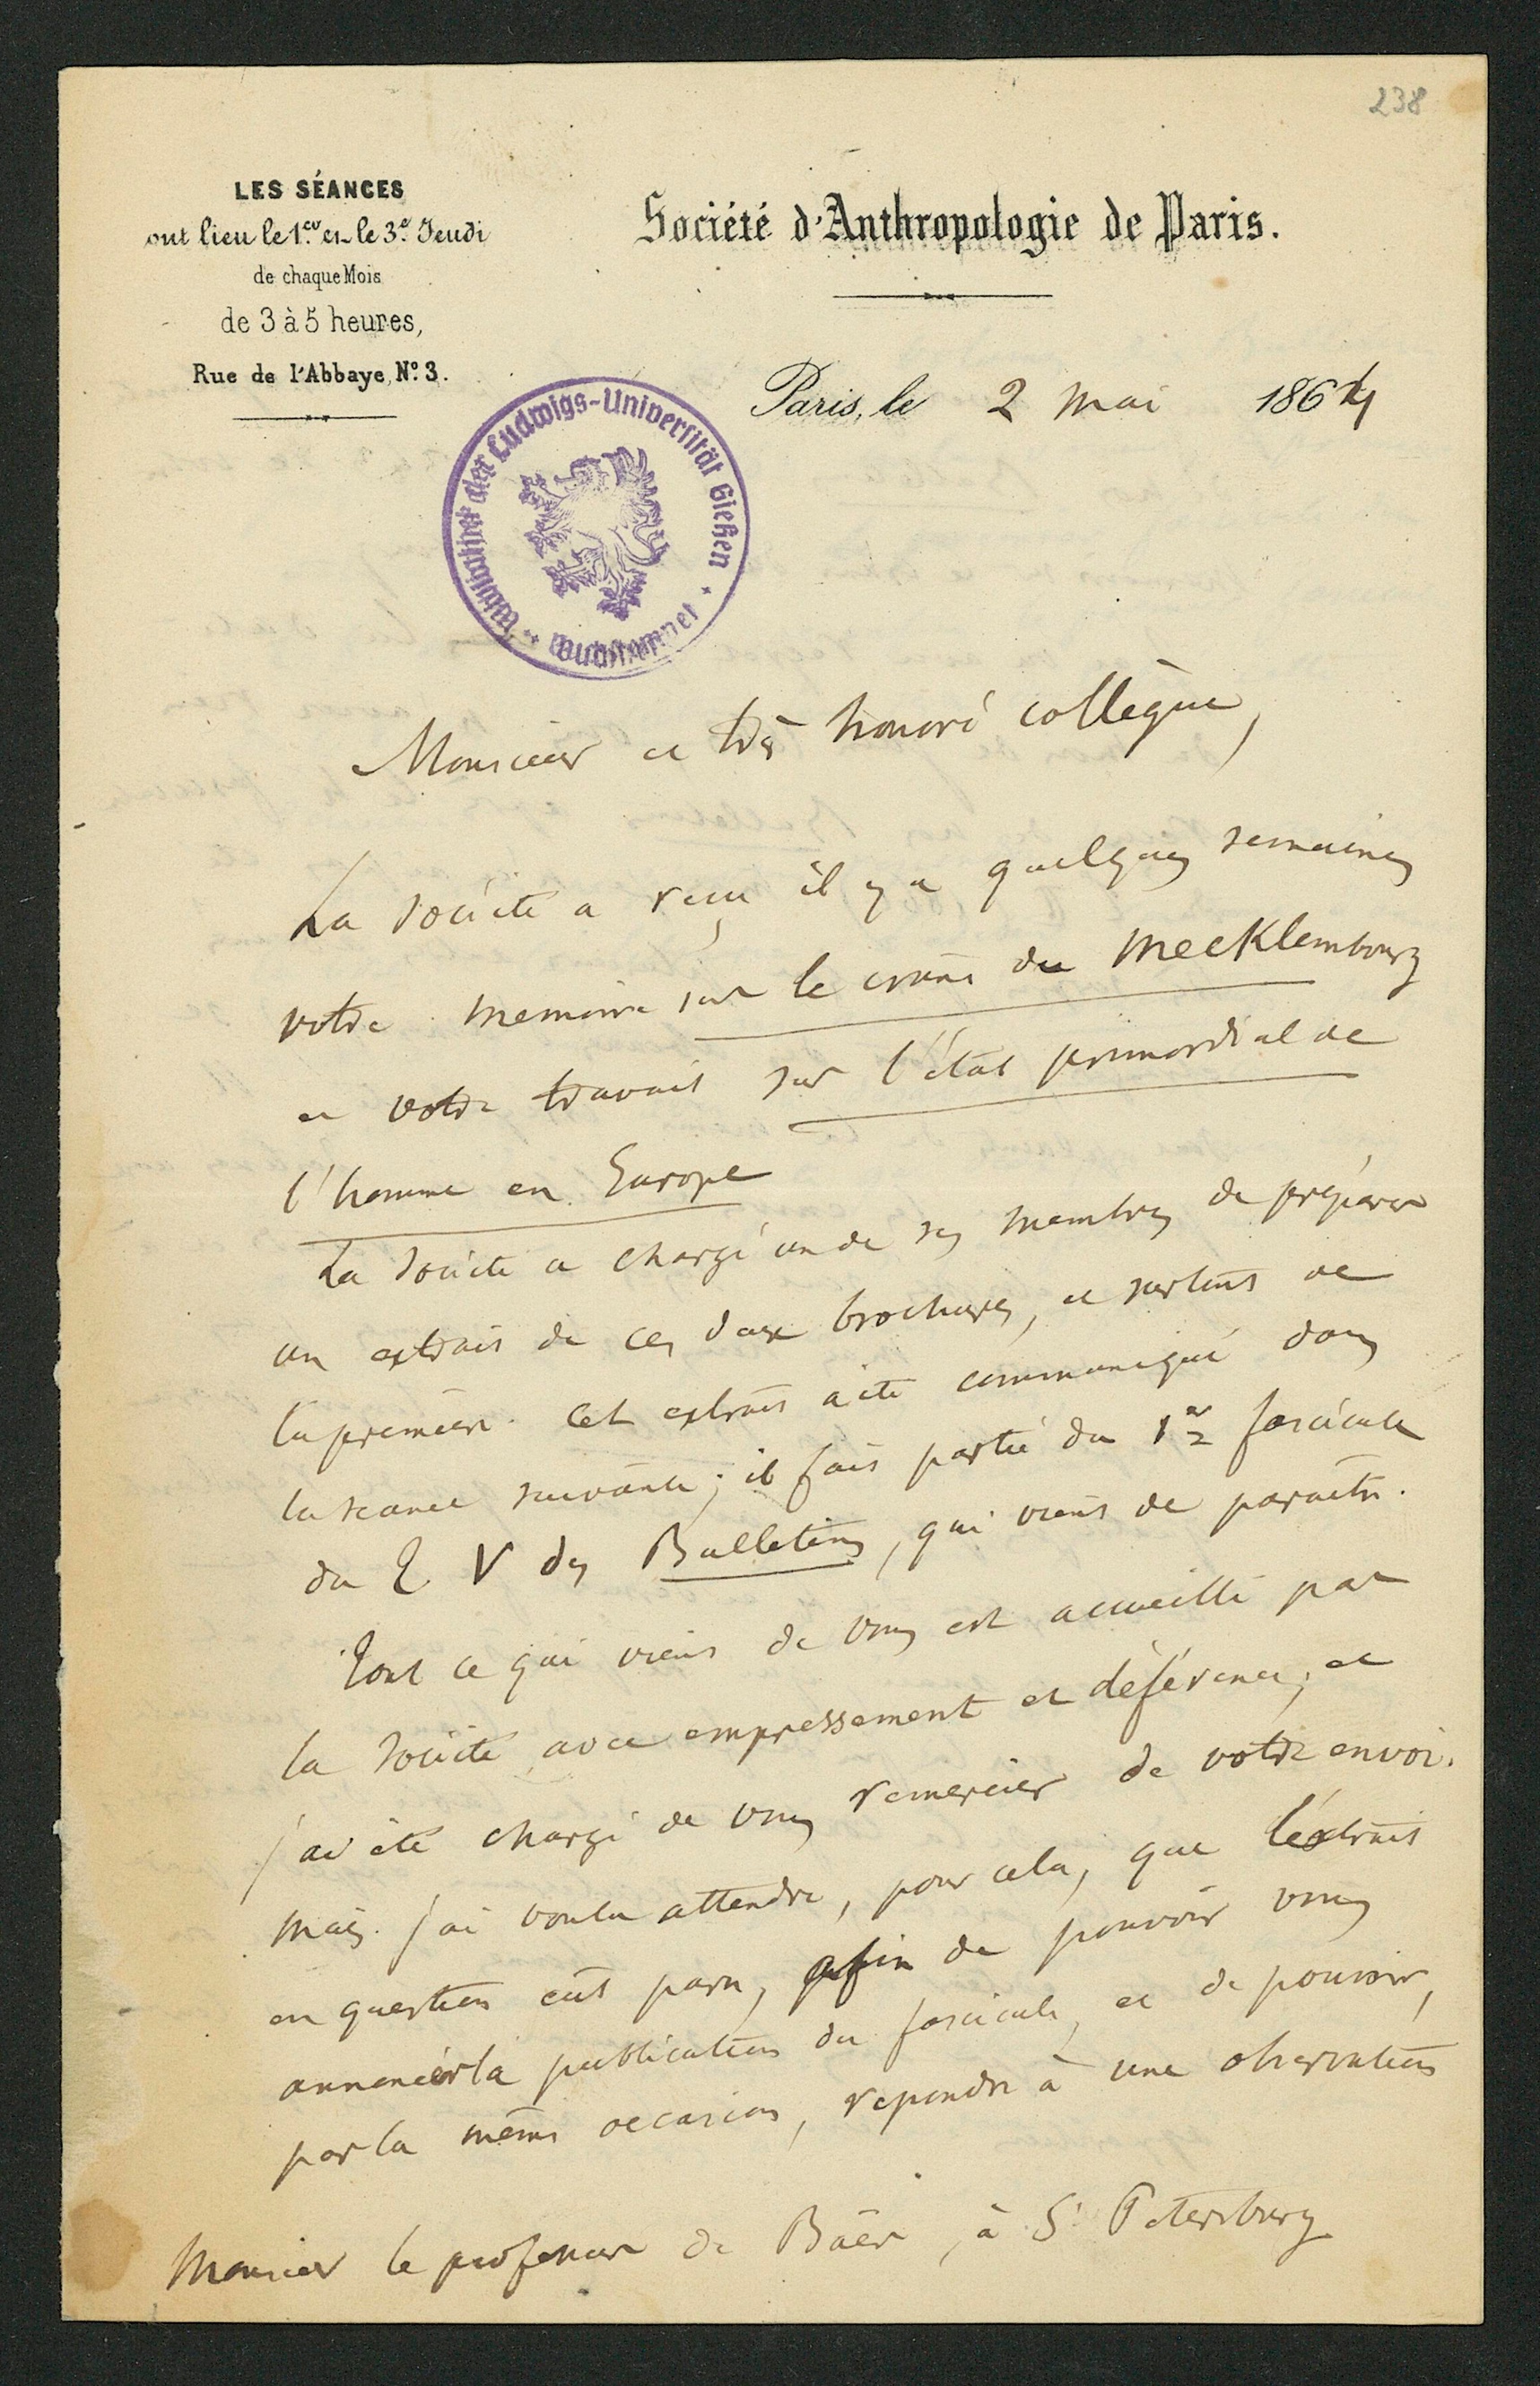 238
LES SÉANCES
ont lieu le 1.er et le 3.e Jeudi
de chaque Mois
de 3 à 5 heures,
Rue de l'Abbaye, N.o 3.
Société d'Anthropologie de Paris.
Paris, le 2 mai 1864
der Ludwigs-Universität Gießen
Monsieur et très honoré collègue,
La société a reçu il y a quelques semaines
votre memoire sur le crane du Mecklembourg
et votre travail sur l'état primordial de
l'homme en Europe
La société a chargé un de ses membres de préparer
un extrait de ces deux brochures, et surtout de
la première. Cet extrait a été communiqué dans
la seance suivante; il fait partie du 1er fascicule
du T. V des Bulletins, qui vient de paraître.
Tout ce qui vient de vous est accueilli par
la société avec empressement et déférence; et
j'ai été chargé de vous remercier de votre envoi.
Mais j'ai voulu attendre, pour cela, que l'extrait
en question eut paru, afin de pouvoir vous
annoncer la publication du fascicule, et de pouvoir,
par la même occasion, repondre à une observation
Monsieur le professeur de Baër, à St Petersburg